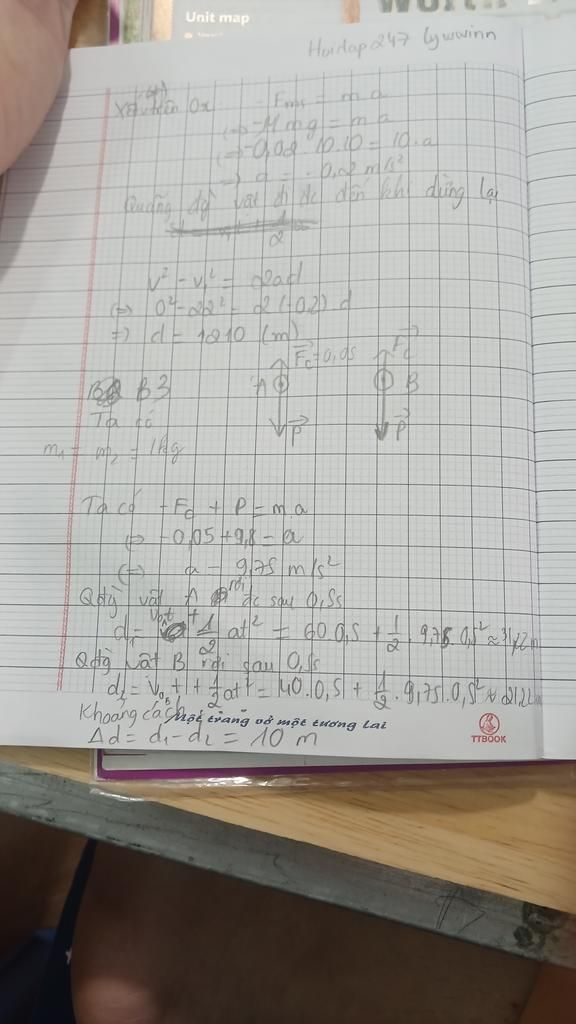 Unit map
Hoidap247 lywwinn
Xét trên Ox: - Fms = m a
(=) -μ m g = m a
(=) -0,02 . 10.10 = 10.a
=) a = -0,02 m/s²
Quãng đg vật đi đc đến khi dừng lại
v² - v₁² = 2ad
(=) 0² - 22² = 2 (-0,2) d
=) d = 1210 (m)
Fc = 0,05 Fc
B3 A B
Ta có P P
m₁ = m₂ = 1kg
Ta có -Fc + P = m.a
(=) -0,05 + 9,8 = a
(=) a = 9,75 m/s²
Qđg vật A rơi đc sau 0,5s
d₁ = v₀t + 1/2 at² = 60.0,5 + 1/2 . 9,75 . 0,5² ≈ 31,22m
Qđg vật B rơi sau 0,5s
d₂ = v₀t + 1/2 at² = 40.0,5 + 1/2 . 9,75 . 0,5² ≈ 21,22m
Khoảng cách
Một trang vở một tương lai
TTBOOK
Δd = d₁ - d₂ = 10 m